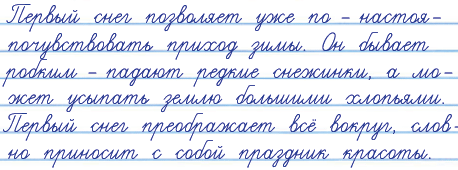 Первый снег позволяет уже по - настоя-
почувствовать приход зимы. Он бывает
робким - падают редкие снежинки, а мо-
жет усыпать землю большими хлопьями.
Первый снег преображает всё вокруг, слов-
но приносит с собой праздник красоты.